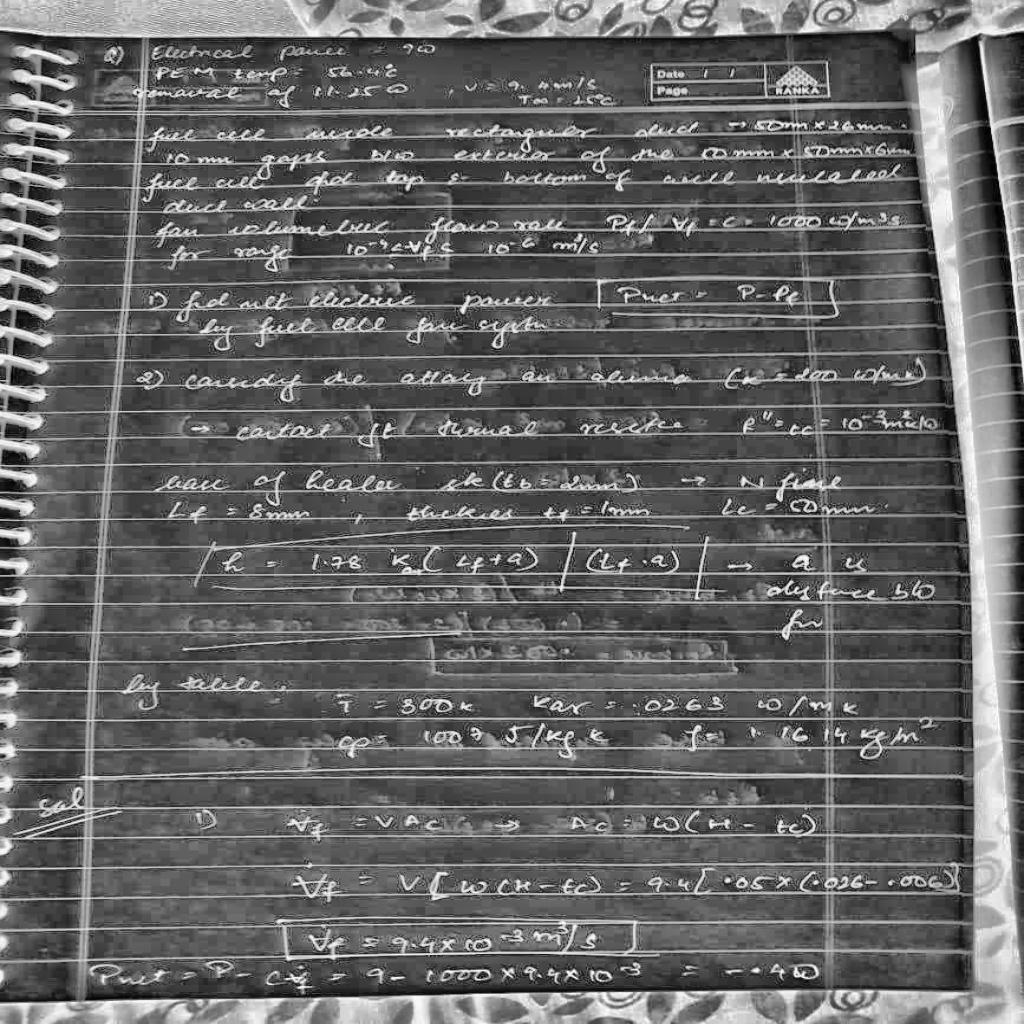 Q) Electrical power = 9W
PEM temp = 56.4°C
removal of 11.25 W , V = 9.4 m/s
T∞ = 25°C
Date / /
Page
RANKA
fuel cell inside rectangular duct → 50mm × 26mm.
10 mm gaps b/w exterior of the 50 mm × 50mm×6mm
fuel cell and top & bottom of well insulated
duct wall.
fan volumetric flow rate Pf/ ∀f = C = 1000 W/m³s
for range 10⁻⁴ ≤ ∀f ≤ 10⁻⁶ m³/s
1) find net electric power Pnet = P - Pf
by fuel cell fan
2) the an (k = 200 W/mk)
→ thermal R"tc = 10⁻³ m²k/W
base of (tb = 2mm) → N fins
Lf = 8mm , tf = 1mm Lc = 50mm.
h = 1.78 Kair ( Lf + a) (Lf . a) → a is
distance b/w
fin
by table.
T = 300k Kair = .0263 W/mk
cp = 1007 J/kg k f = 1.1614 kg/m²
sol
1) ∀f = V Ac → Ac = W(H - tc)
∀f = V [ W (H - tc) = 9.4[ .05 × (.026 - .006)]
∀f = 9.4 × 10⁻³ m³/s
Pnet = P - C∀f = 9 - 1000 × 9.4 × 10⁻³ = -.4W